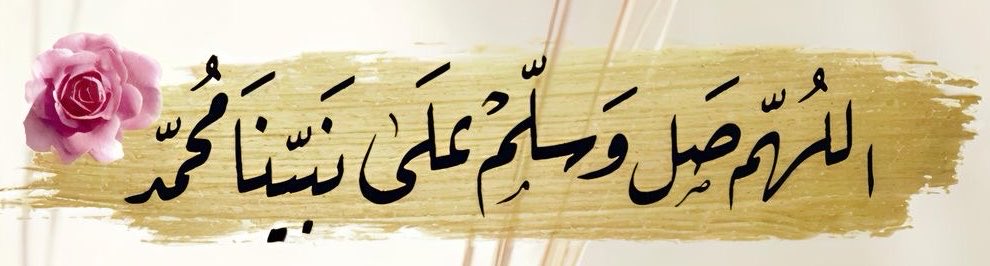 اللهُمّ صَل وَسلّمْ عَلَى نَبيّنَا مُحمّد